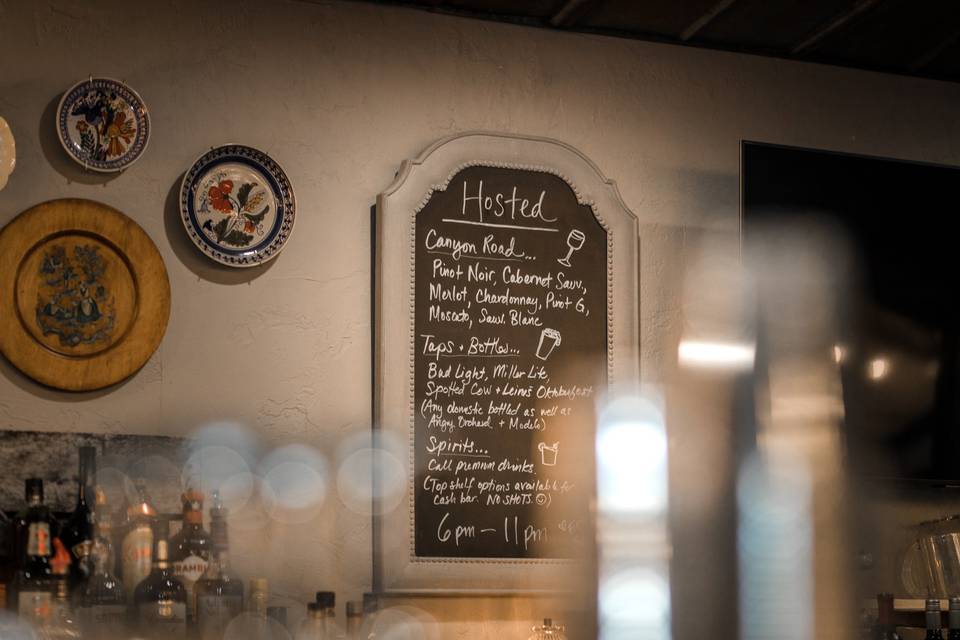 Hosted
Canyon Road...
Pinot Noir, Cabernet Sauv.,
Merlot, Chardonnay, Pinot G,
Moscato, Sauv. Blanc
Taps + Bottles...
Bud Light, Miller Lite,
Spotted Cow + Leine's Oktoberfest
(Any domestic bottled as well as
Angry Orchard + Modelo)
Spirits...
Call premium drinks.
(Top shelf options available for
cash bar. NO SHOTS. ☺)
6pm — 11pm
RAMB